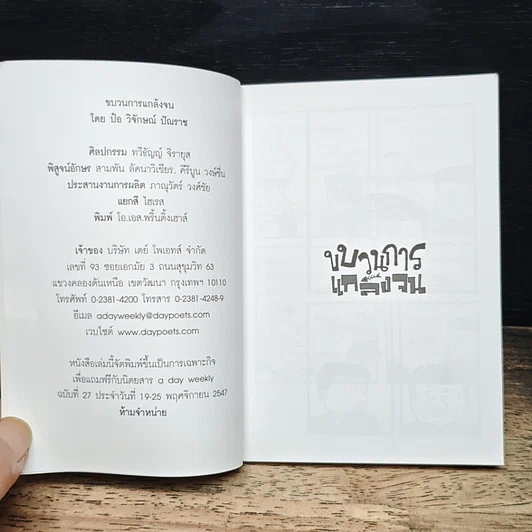 ขบวนการแกล้งจน
โดย ป๋อ วิจักษณ์ ปัณราช
ศิลปกรรม ทวีธัญญ์ จิรายุส
พิสูจน์อักษร สามพัน ลัคนาวิเชียร, คีรีบูน วงษ์ชื่น
ประสานงานการผลิต ภาณุวัตร์ วงศ์ชัย
แยกสี ไฮเรส
พิมพ์ โอ.เอส.พริ้นติ้งเฮาส์
เจ้าของ บริษัท เดย์ โพเอทส์ จำกัด
เลขที่ 93 ซอยเอกมัย 3 ถนนสุขุมวิท 63
แขวงคลองตันเหนือ เขตวัฒนา กรุงเทพฯ 10110
โทรศัพท์ 0-2381-4200 โทรสาร 0-2381-4248-9
อีเมล adayweekly@daypoets.com
เวบไซต์ www.daypoets.com
หนังสือเล่มนี้จัดพิมพ์ขึ้นเป็นการเฉพาะกิจ
เพื่อแถมฟรีกับนิตยสาร a day weekly
ฉบับที่ 27 ประจำวันที่ 19-25 พฤศจิกายน 2547
ห้ามจำหน่าย
ขบวนการ
แกล้งจน